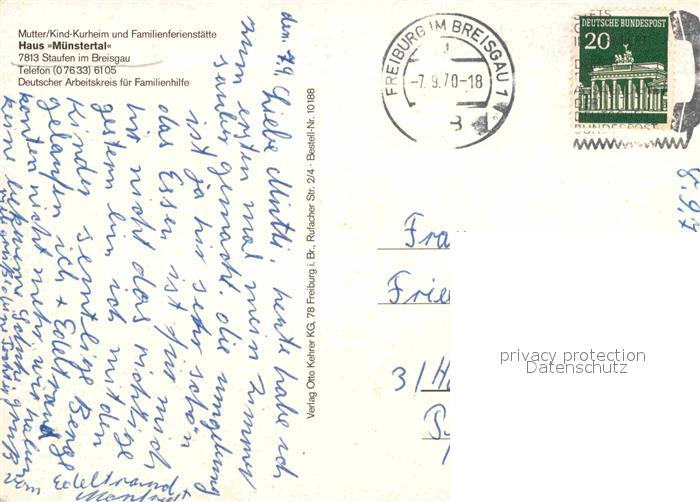 Mutter/Kind-Kurheim und Familienferienstätte
Haus »Münstertal«
7813 Staufen im Breisgau
Telefon (07633) 6105
Deutscher Arbeitskreis für Familienhilfe
den 7.9.
Liebe Mutti, heute habe ich
zum ersten mal mein Zimmer
sauber gemacht. die umgebung
ist ja hir sehr schön
das Essen ist für mich
hir nicht das richtige
gestern bin ich mit den
Kinder semtlige Berge
gelaufen ich + Edeltraud
konten nicht mehr wir haben
keine bekweme Schuhe
gruß
vom Edeltraud
Manfred
Verlag Otto Kehrer KG, 78 Freiburg i. Br., Rufacher Str. 2/4 · Bestell-Nr. 10188
FREIBURG IM BREISGAU 1
-7.9.70-18
DEUTSCHE BUNDESPOST
20
8.9.7
Fra
Frie
31
privacy protection
Datenschutz